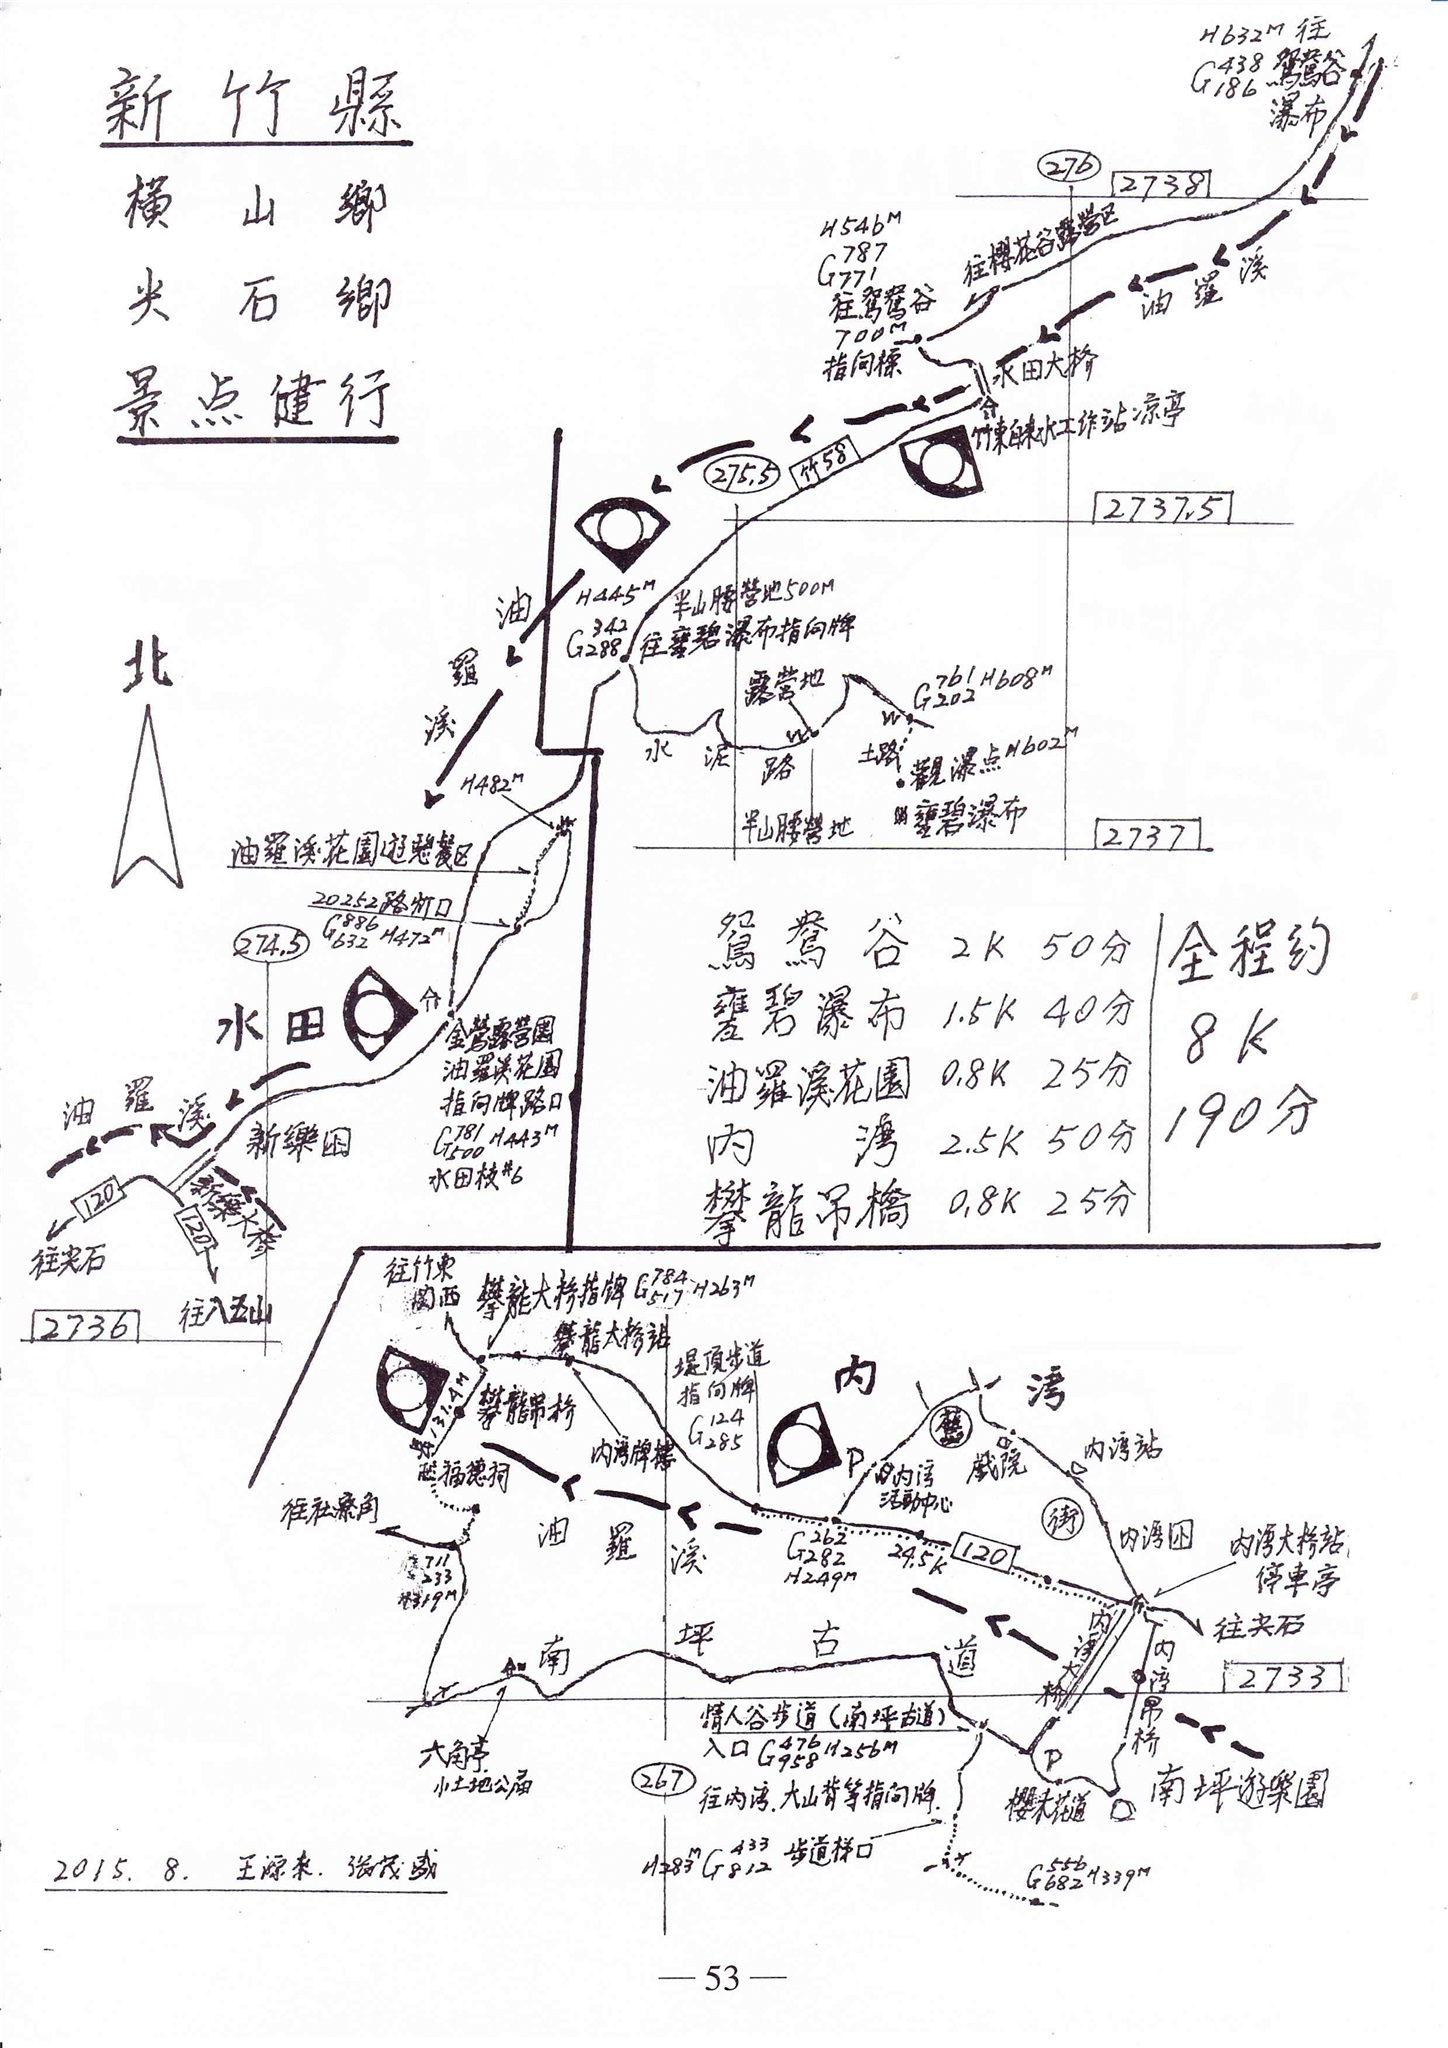 新竹縣
橫山鄉
尖石鄉
景点健行
H632M 往
G438 186 鴛鴦谷
瀑布
276
2738
H546M
G787 771
往鴛鴦谷
700M
指向標
往櫻花谷露營区
油羅溪
水田大橋
竹東自來水工作站涼亭
275.5
竹58
2737.5
油羅溪
H445M
G342 288
半山腰營地500M
往甕碧瀑布指向牌
露營地
G761 202 H608M
水泥路
土路
觀瀑点H602M
甕碧瀑布
半山腰營地
2737
北
H482M
油羅溪花園遊憩餐区
20252路灯口
G886 632 H472M
274.5
水田
金鶯露營園
油羅溪花園
指向牌路口
G781 500 H443M
水田枝#6
油羅溪
新樂国
新樂大橋
120
120
往尖石
往八五山
2736
鴛鴦谷 2K 50分
甕碧瀑布 1.5K 40分
油羅溪花園 0.8K 25分
內灣 2.5K 50分
攀龍吊橋 0.8K 25分
全程約
8K
190分
往竹東
関西
攀龍大橋指牌 G784 517 H263M
攀龍大橋站
131.4M
攀龍吊橋
福德祠
內湾牌樓
堤頂步道
指向牌
G124 285
內湾
P
內湾
活動中心
戲院
內湾站
街
油羅溪
往社寮角
711
233
319M
G262 282
H249M
24.5K
120
內湾国
內湾大橋站
停車亭
往尖石
內湾大橋
內湾吊橋
南坪古道
2733
六角亭
小土地公庙
情人谷步道(南坪古道)
入口 G476 958 H256M
267
往內湾.大山背等指向牌
H283M G433 812 步道梯口
G556 682 H339M
P
櫻木花道
南坪遊樂園
2015.8. 王源來.張茂盛
— 53 —